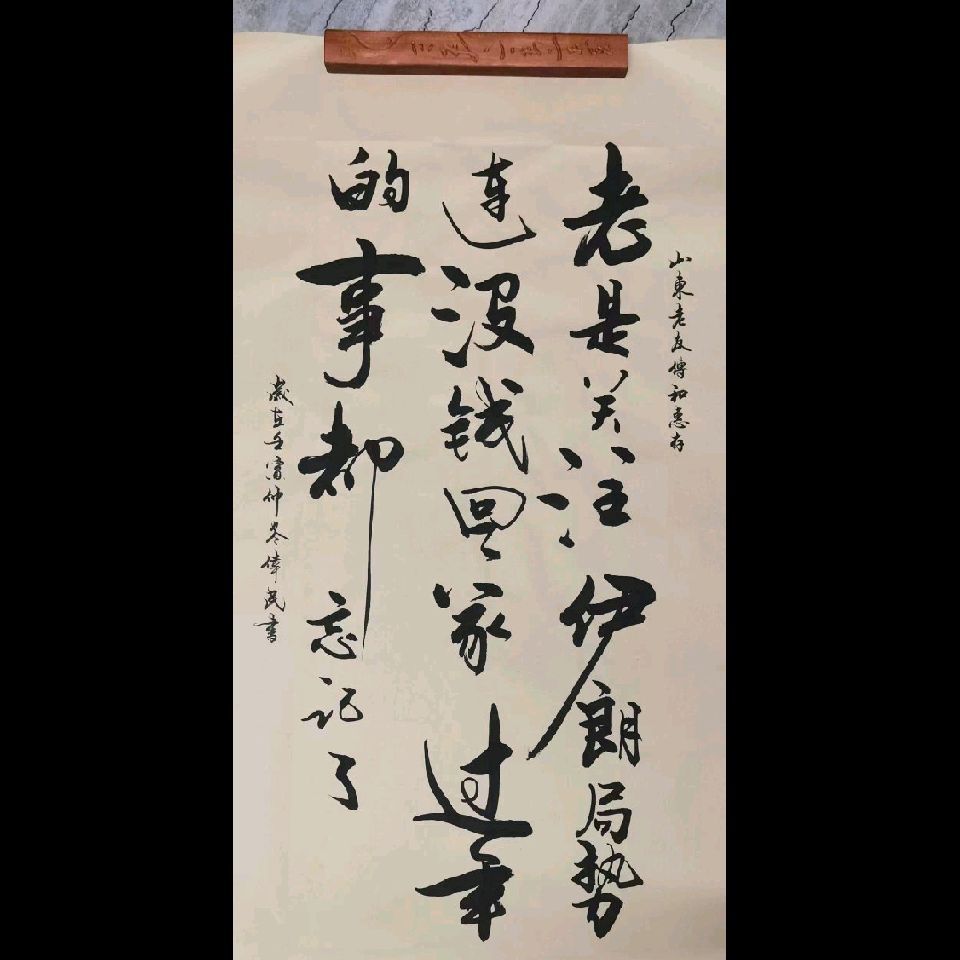 山東老友傳和惠存
老是关注伊朗局势
连没钱回家过年
的事都忘记了
歲在壬寅仲冬偉民書